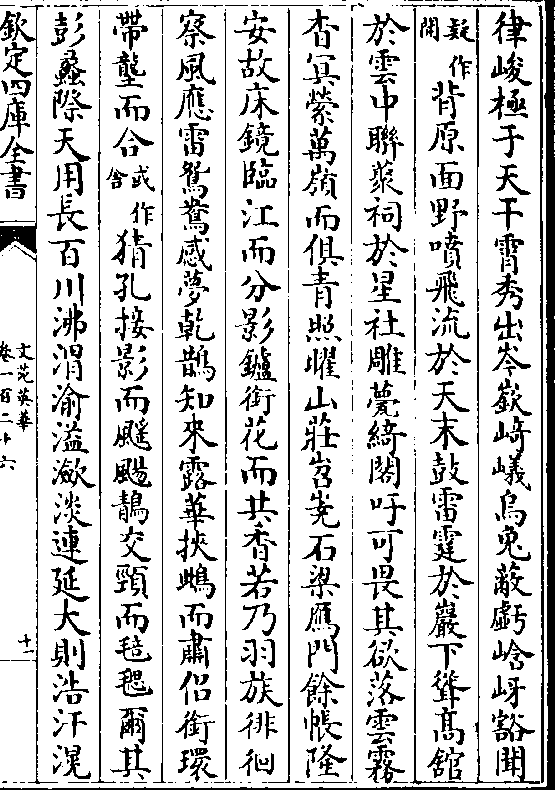 律峻極于天干霄秀出岑嶔﨑嶬烏兎蔽虧㟏岈豁開
疑作閞背原面野噴飛流於天末鼓雷霆於巖下聳髙舘
於雲中聮藂祠於星社雕甍綺閣吁可畏其欲落雲霧
杳冥縈萬嶺而俱青照曜山莊岧嶤石梁鴈門餘帳隆
安故床鏡臨江而分影鑪銜花而共香若乃羽族徘徊
察風應雷鴛鴦感夢乾鵲知來露華挾鵰而肅侣銜環
帶壟而合或作含猜孔接影而飂颺鶄交頸而毰毸爾其
彭蠡際天用長百川沸渭渝溢瀲淡連延大則浩汗滉
欽定四庫全書
文苑英華
卷一百二十六
十一